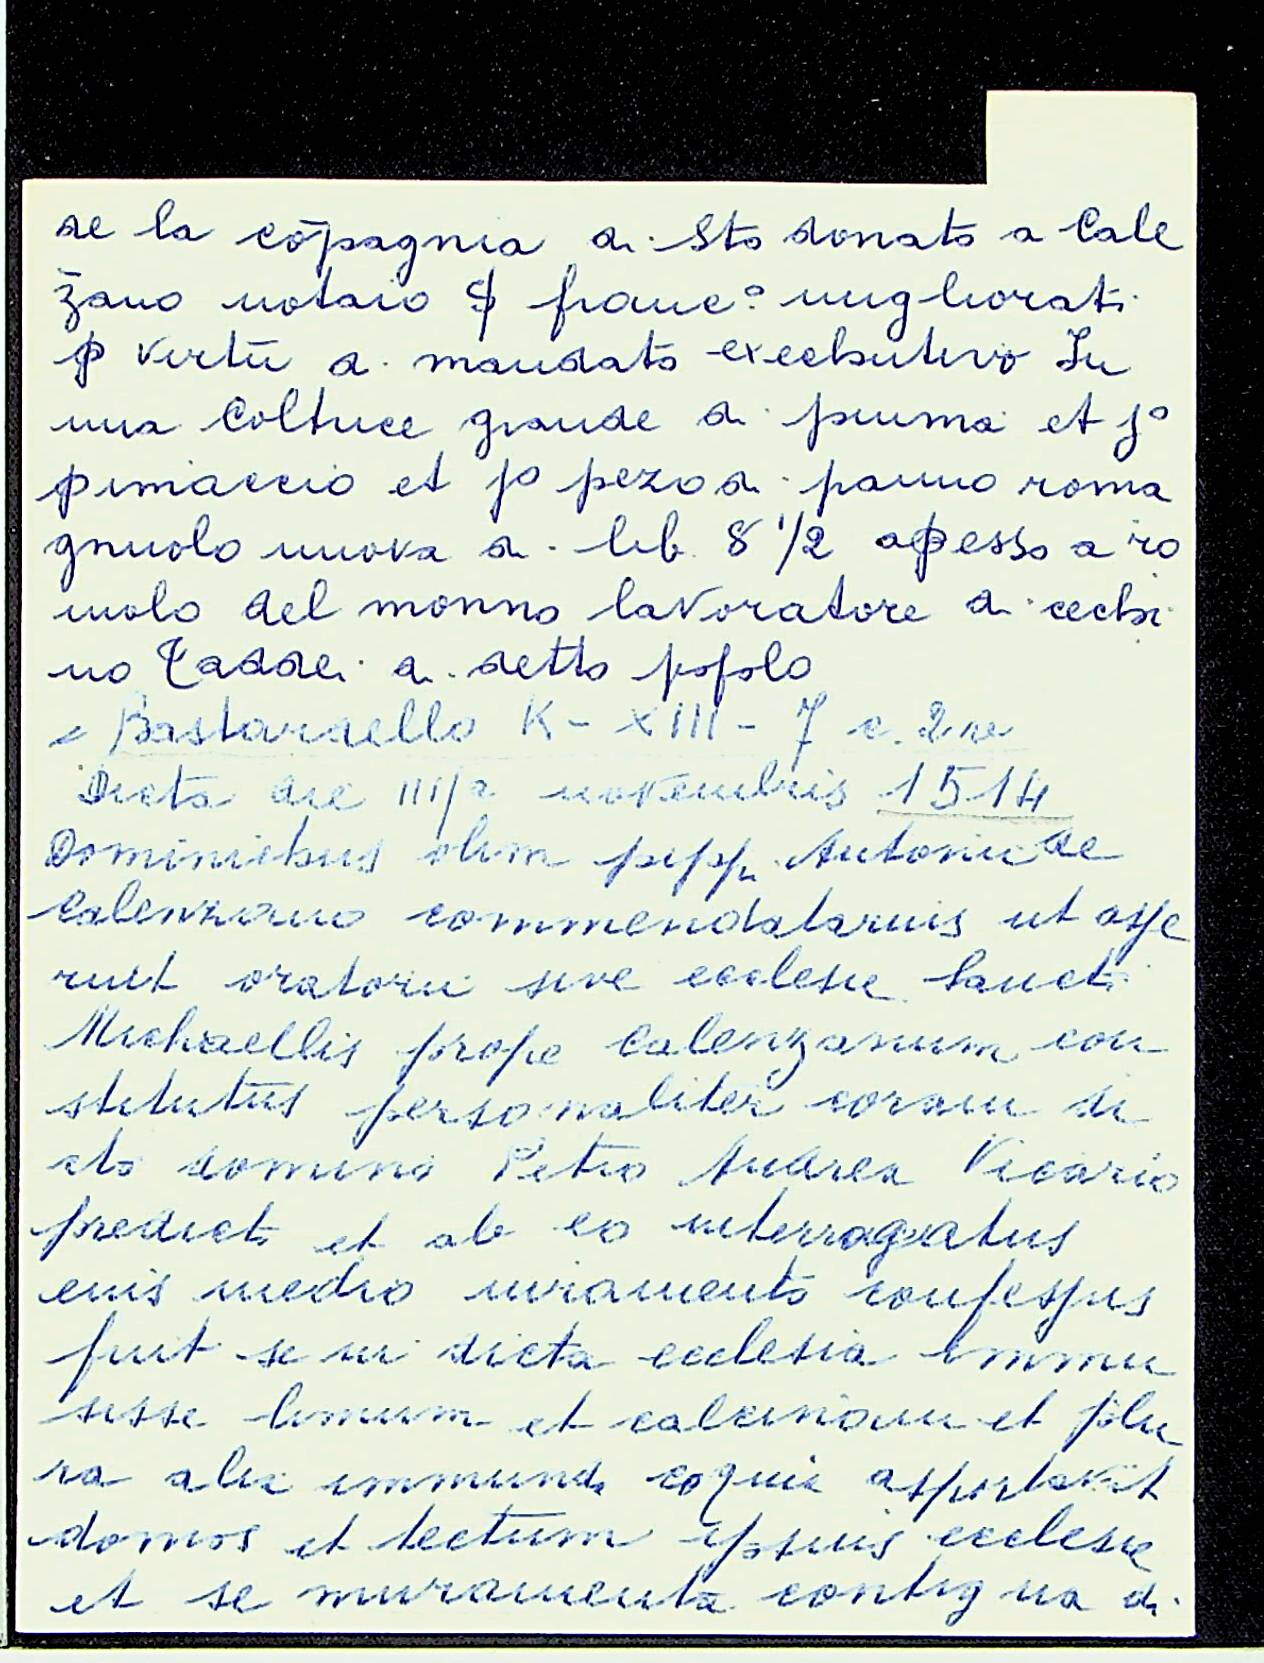 de la cõpagnia di Sto donato a Cale
zano notaio ꝑ franc.º migliorati
ꝑ virtū di mandato exechutivo In
una Coltrice grande di piuma et jº
pimaccio et jº pezo di panno roma
gnuolo nuova di lib. 8 1/2 apesso a ro
molo del monno lavoratore di cechi
no Taddei di detto popolo
Bastardello K - XIII - 7 c. 2
Dicta die IIIª novembris 1514
Dominichus olim pipp. Antonii de
Calenzano commendatarius ut asse
ruit oratorii sive ecclesie Sancti
Michaellis prope Calenzanum con
stitutus personaliter coram di
cto domino Petro Andrea Vicario
predicto et ab eo interrogatus
eius medio iuramento confessus
fuit se in dicta ecclesia immi
sisse limum et calcinam et plu
ra alia immunda coquia asportavit
domos et tectum ipsius ecclesie
et se muramenta contigua di